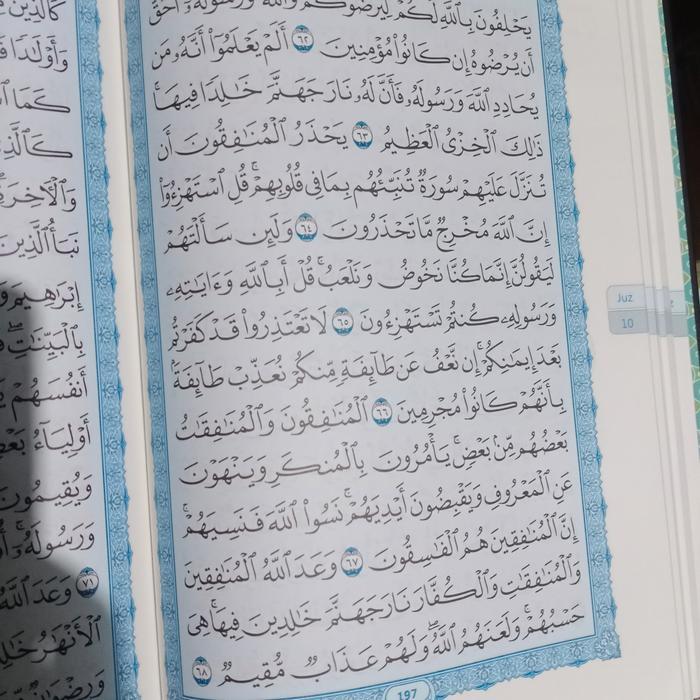 يَحْلِفُونَ بِٱللَّهِ لَكُمْ لِيُرْضُوكُمْ وَٱللَّهُ وَرَسُولُهُۥٓ أَحَقُّ
أَن يُرْضُوهُ إِن كَانُوا۟ مُؤْمِنِينَ ٦٢ أَلَمْ يَعْلَمُوٓا۟ أَنَّهُۥ مَن
يُحَادِدِ ٱللَّهَ وَرَسُولَهُۥ فَأَنَّ لَهُۥ نَارَ جَهَنَّمَ خَٰلِدًا فِيهَا ۚ
ذَٰلِكَ ٱلْخِزْىُ ٱلْعَظِيمُ ٦٣ يَحْذَرُ ٱلْمُنَٰفِقُونَ أَن
تُنَزَّلَ عَلَيْهِمْ سُورَةٌ تُنَبِّئُهُم بِمَا فِى قُلُوبِهِمْ ۚ قُلِ ٱسْتَهْزِءُوٓا۟
إِنَّ ٱللَّهَ مُخْرِجٌ مَّا تَحْذَرُونَ ٦٤ وَلَئِن سَأَلْتَهُمْ
لَيَقُولُنَّ إِنَّمَا كُنَّا نَخُوضُ وَنَلْعَبُ ۚ قُلْ أَبِٱللَّهِ وَءَايَٰتِهِۦ
وَرَسُولِهِۦ كُنتُمْ تَسْتَهْزِءُونَ ٦٥ لَا تَعْتَذِرُوا۟ قَدْ كَفَرْتُم
بَعْدَ إِيمَٰنِكُمْ ۚ إِن نَّعْفُ عَن طَآئِفَةٍ مِّنكُمْ نُعَذِّبْ طَآئِفَةًۢ
بِأَنَّهُمْ كَانُوا۟ مُجْرِمِينَ ٦٦ ٱلْمُنَٰفِقُونَ وَٱلْمُنَٰفِقَٰتُ
بَعْضُهُم مِّنۢ بَعْضٍ ۚ يَأْمُرُونَ بِٱلْمُنكَرِ وَيَنْهَوْنَ
عَنِ ٱلْمَعْرُوفِ وَيَقْبِضُونَ أَيْدِيَهُمْ ۚ نَسُوا۟ ٱللَّهَ فَنَسِيَهُمْ ۗ
إِنَّ ٱلْمُنَٰفِقِينَ هُمُ ٱلْفَٰسِقُونَ ٦٧ وَعَدَ ٱللَّهُ ٱلْمُنَٰفِقِينَ
وَٱلْمُنَٰفِقَٰتِ وَٱلْكُفَّارَ نَارَ جَهَنَّمَ خَٰلِدِينَ فِيهَا ۚ هِىَ
حَسْبُهُمْ ۚ وَلَعَنَهُمُ ٱللَّهُ ۖ وَلَهُمْ عَذَابٌ مُّقِيمٌ ٦٨
197
Juz
10
كَٱلَّذِينَ
وَأَوْلَٰدًا
كَمَا
وَٱلْءَاخِرَةِ
نَبَأُ ٱلَّذِينَ
إِبْرَٰهِيمَ
بِٱلْبَيِّنَٰتِ ۖ
أَنفُسَهُمْ
أَوْلِيَآءُ
وَيُقِيمُونَ
وَرَسُولَهُۥٓ ۚ
٧١ وَعَدَ ٱللَّهُ
ٱلْأَنْهَٰرُ